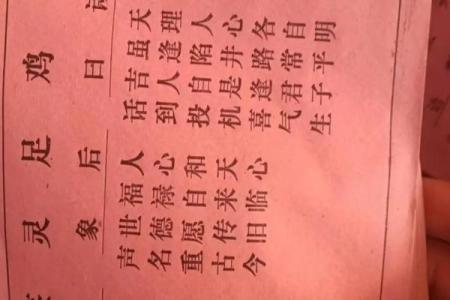 鸡足灵
曰
天理人心各自明
虽逢陷井路常平
吉人自是逢君子
话到投机喜气生
后象
人心和天心
福禄自来临
世德愿传旧
声名重古今